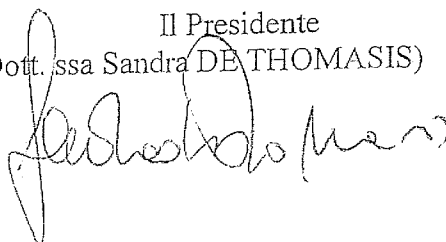 Il Presidente
Dott.ssa Sandra DE THOMASIS)